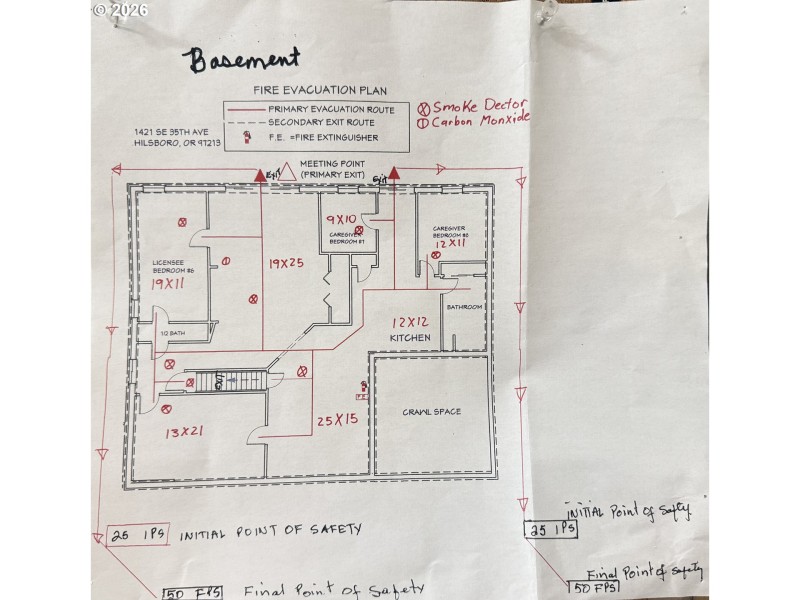 © 2026
Basement
FIRE EVACUATION PLAN
PRIMARY EVACUATION ROUTE
SECONDARY EXIT ROUTE
F.E. =FIRE EXTINGUISHER
Smoke Dector
Carbon Monxide
1421 SE 35TH AVE
HILSBORO, OR 97213
MEETING POINT
(PRIMARY EXIT)
Exit
Exit
9X10
CAREGIVER
BEDROOM #1
CAREGIVER
BEDROOM #2
12X11
LICENSEE
BEDROOM #6
19X11
19X25
BATHROOM
1/2 BATH
12X12
KITCHEN
25X15
13X21
CRAWL SPACE
25 IPS
INITIAL POINT OF SAFETY
50 FPS
Final Point of Safety
INITIAL Point of Safety
25 IPS
Final Point of safety
50 FPS